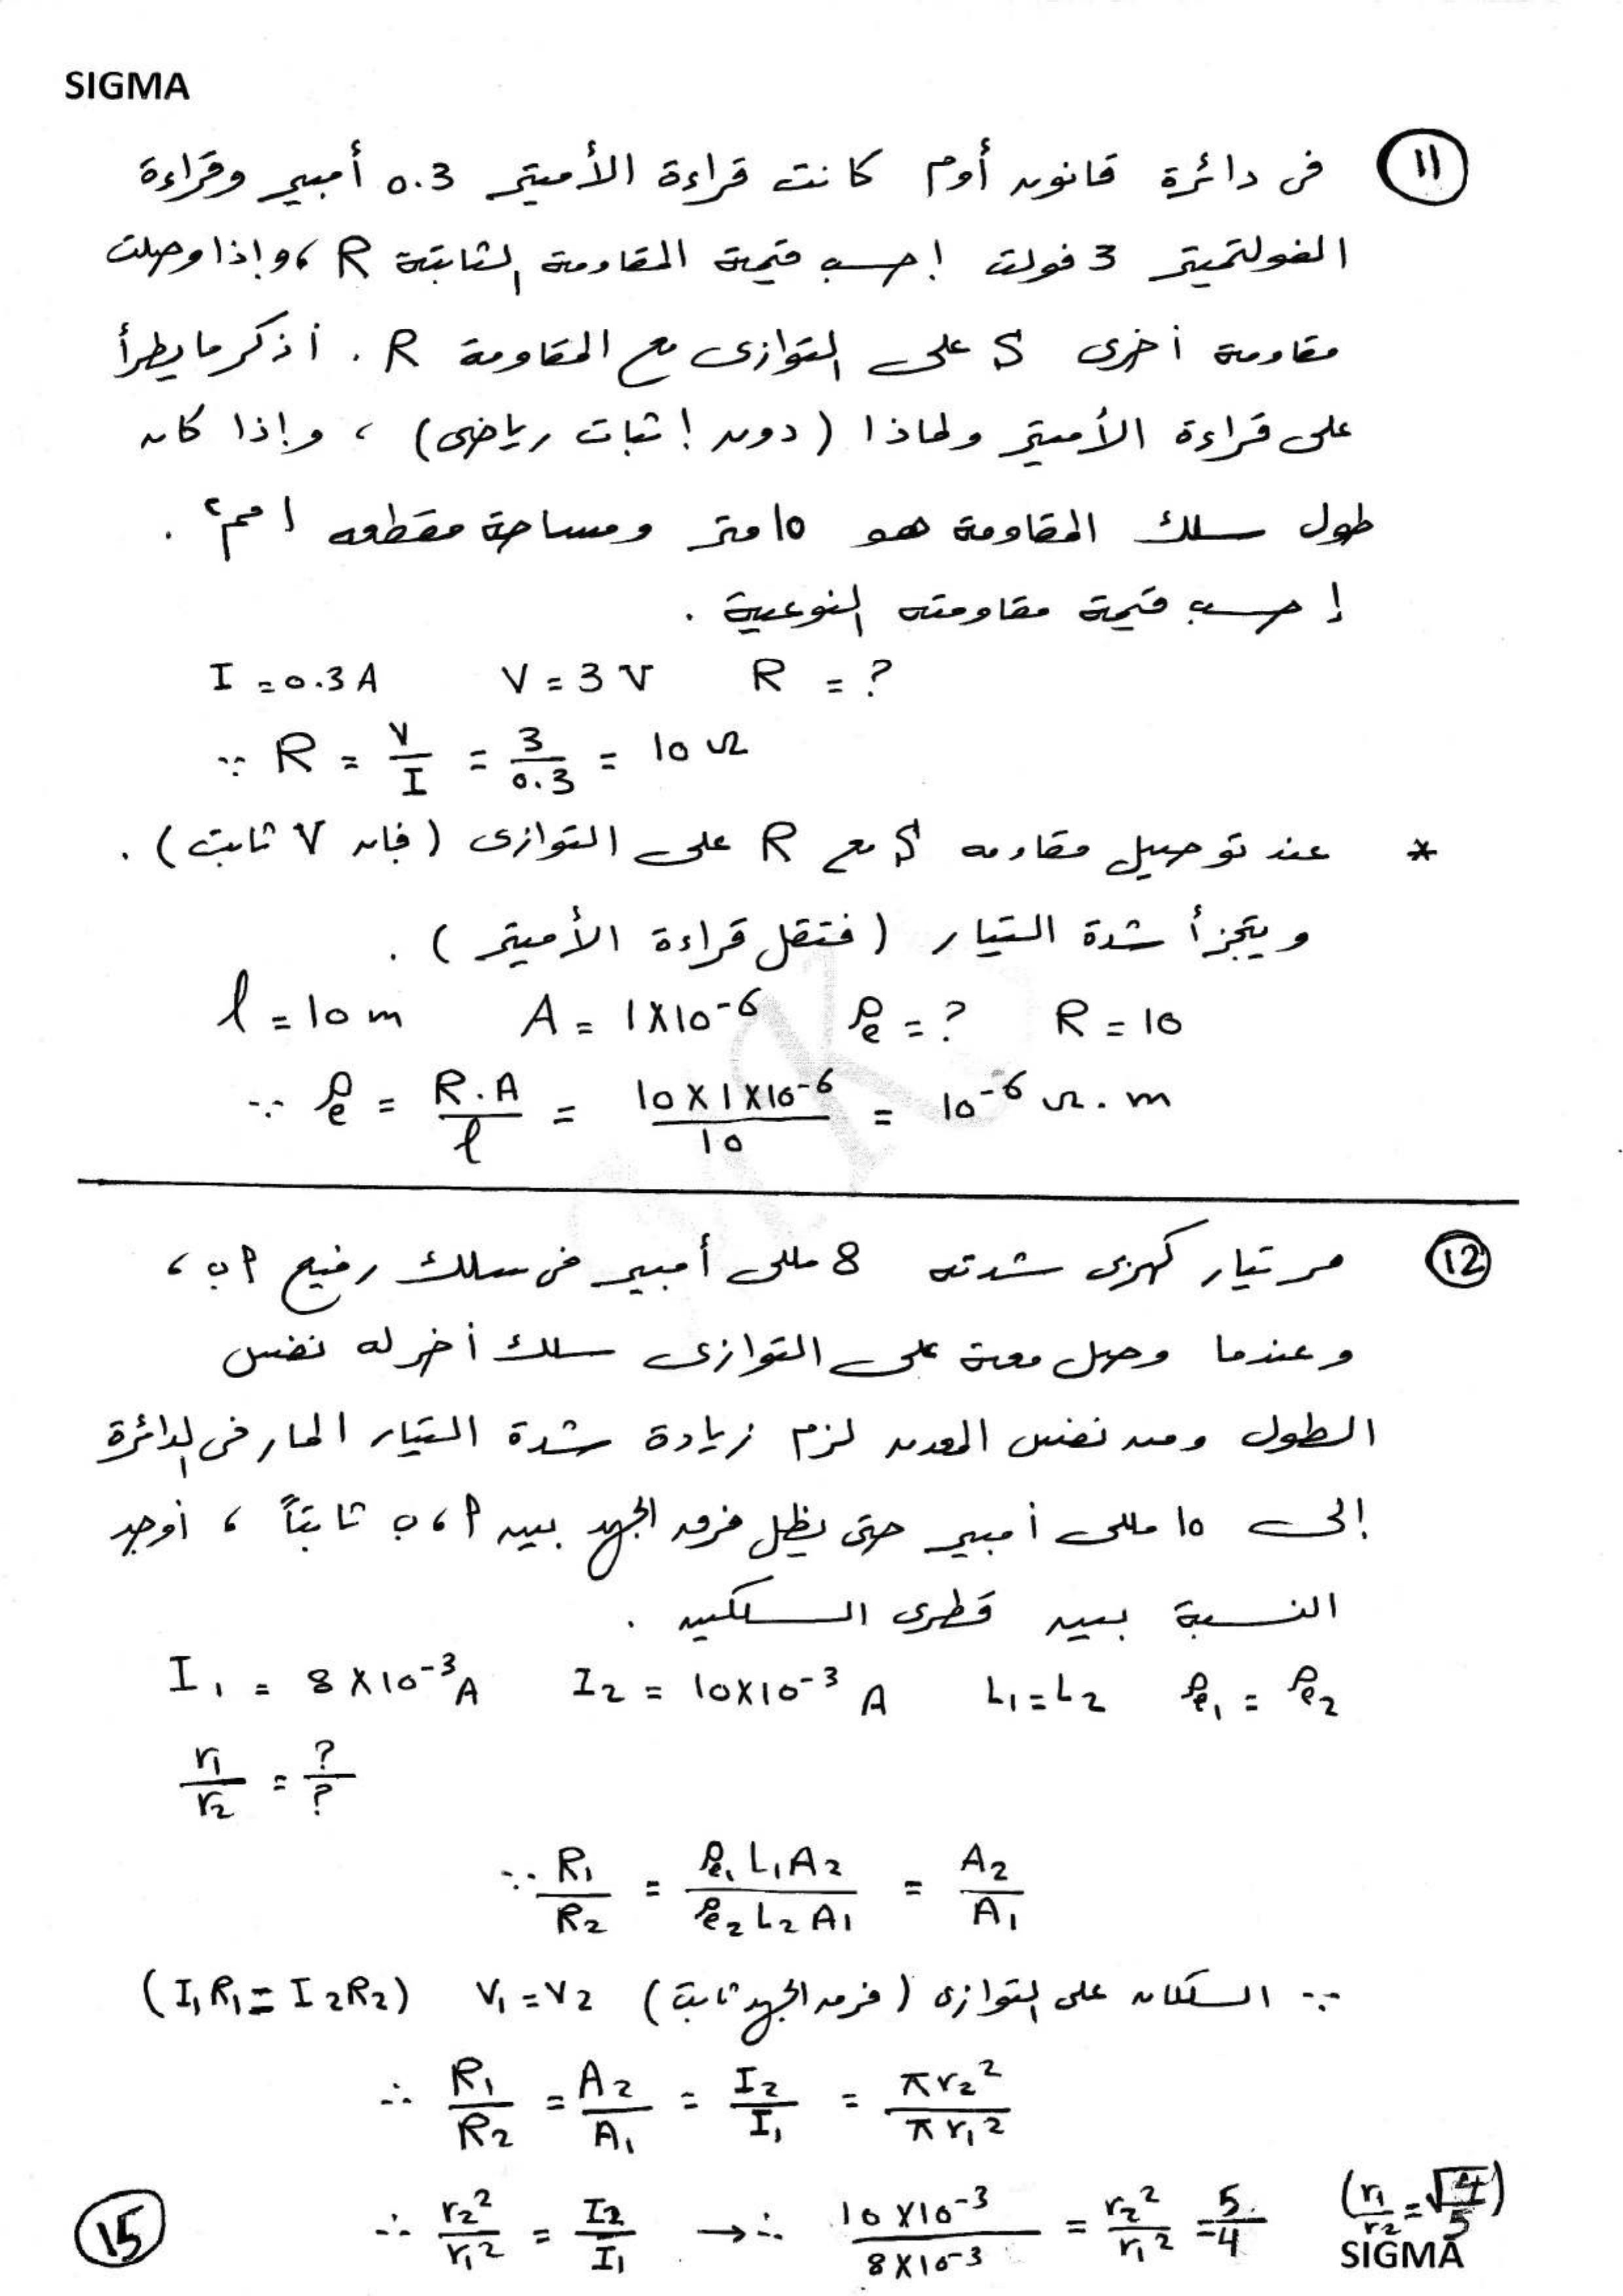 SIGMA
(11) فى دائرة قانون أوم كانت قراءة الأميتر 0.3 أمبير وقراءة
الفولتميتر 3 فولت إحسب قيمة المقاومة الثابتة R ، وإذا وصلت
مقاومة أخرى S على التوازى مع المقاومة R . أذكر ما يطرأ
على قراءة الأميتر ولماذا (دون إثبات رياضى) ، وإذا كان
طول سلك المقاومة هو 10 متر ومساحة مقطعه 1 مم² .
إحسب قيمة مقاومته النوعية .
I = 0.3 A V = 3 V R = ?
∵ R = V/I = 3/0.3 = 10 Ω
* عند توصيل مقاومه S مع R على التوازى (فإن V ثابت) .
ويتجزأ شدة التيار (فتقل قراءة الأميتر) .
ℓ = 10 m A = 1X10⁻⁶ ρe = ? R = 10
∵ ρe = R.A/ℓ = 10 X 1 X 10⁻⁶/10 = 10⁻⁶ Ω.m
(12) مر تيار كهربى شدته 8 مللى أمبير فى سلك رفيع أ ب ،
وعندما وصل معة على التوازى سلك أخر له نفس
الطول ومن نفس المعدن لزم زيادة شدة التيار المار فى الدائرة
إلى 10 مللى أمبير حتى يظل فرق الجهد بين أ ، ب ثابتاً ، أوجد
النسبة بين قطرى السلكين .
I₁ = 8 X10⁻³ A I₂ = 10X10⁻³ A L₁=L₂ ρe₁ = ρe₂
r₁/r₂ = ?/?
∵ R₁/R₂ = ρe₁ L₁A₂/ρe₂ L₂ A₁ = A₂/A₁
∵ السلكان على التوازى (فرق الجهد ثابت) V₁ = V₂ (I₁R₁ = I₂R₂)
∴ R₁/R₂ = A₂/A₁ = I₂/I₁ = πr₂²/πr₁²
∴ r₂²/r₁² = I₂/I₁ → ∴ 10 X10⁻³/8 X10⁻³ = r₂²/r₁² = 5/4 (r₁/r₂ = √4/5)
(15)
SIGMA